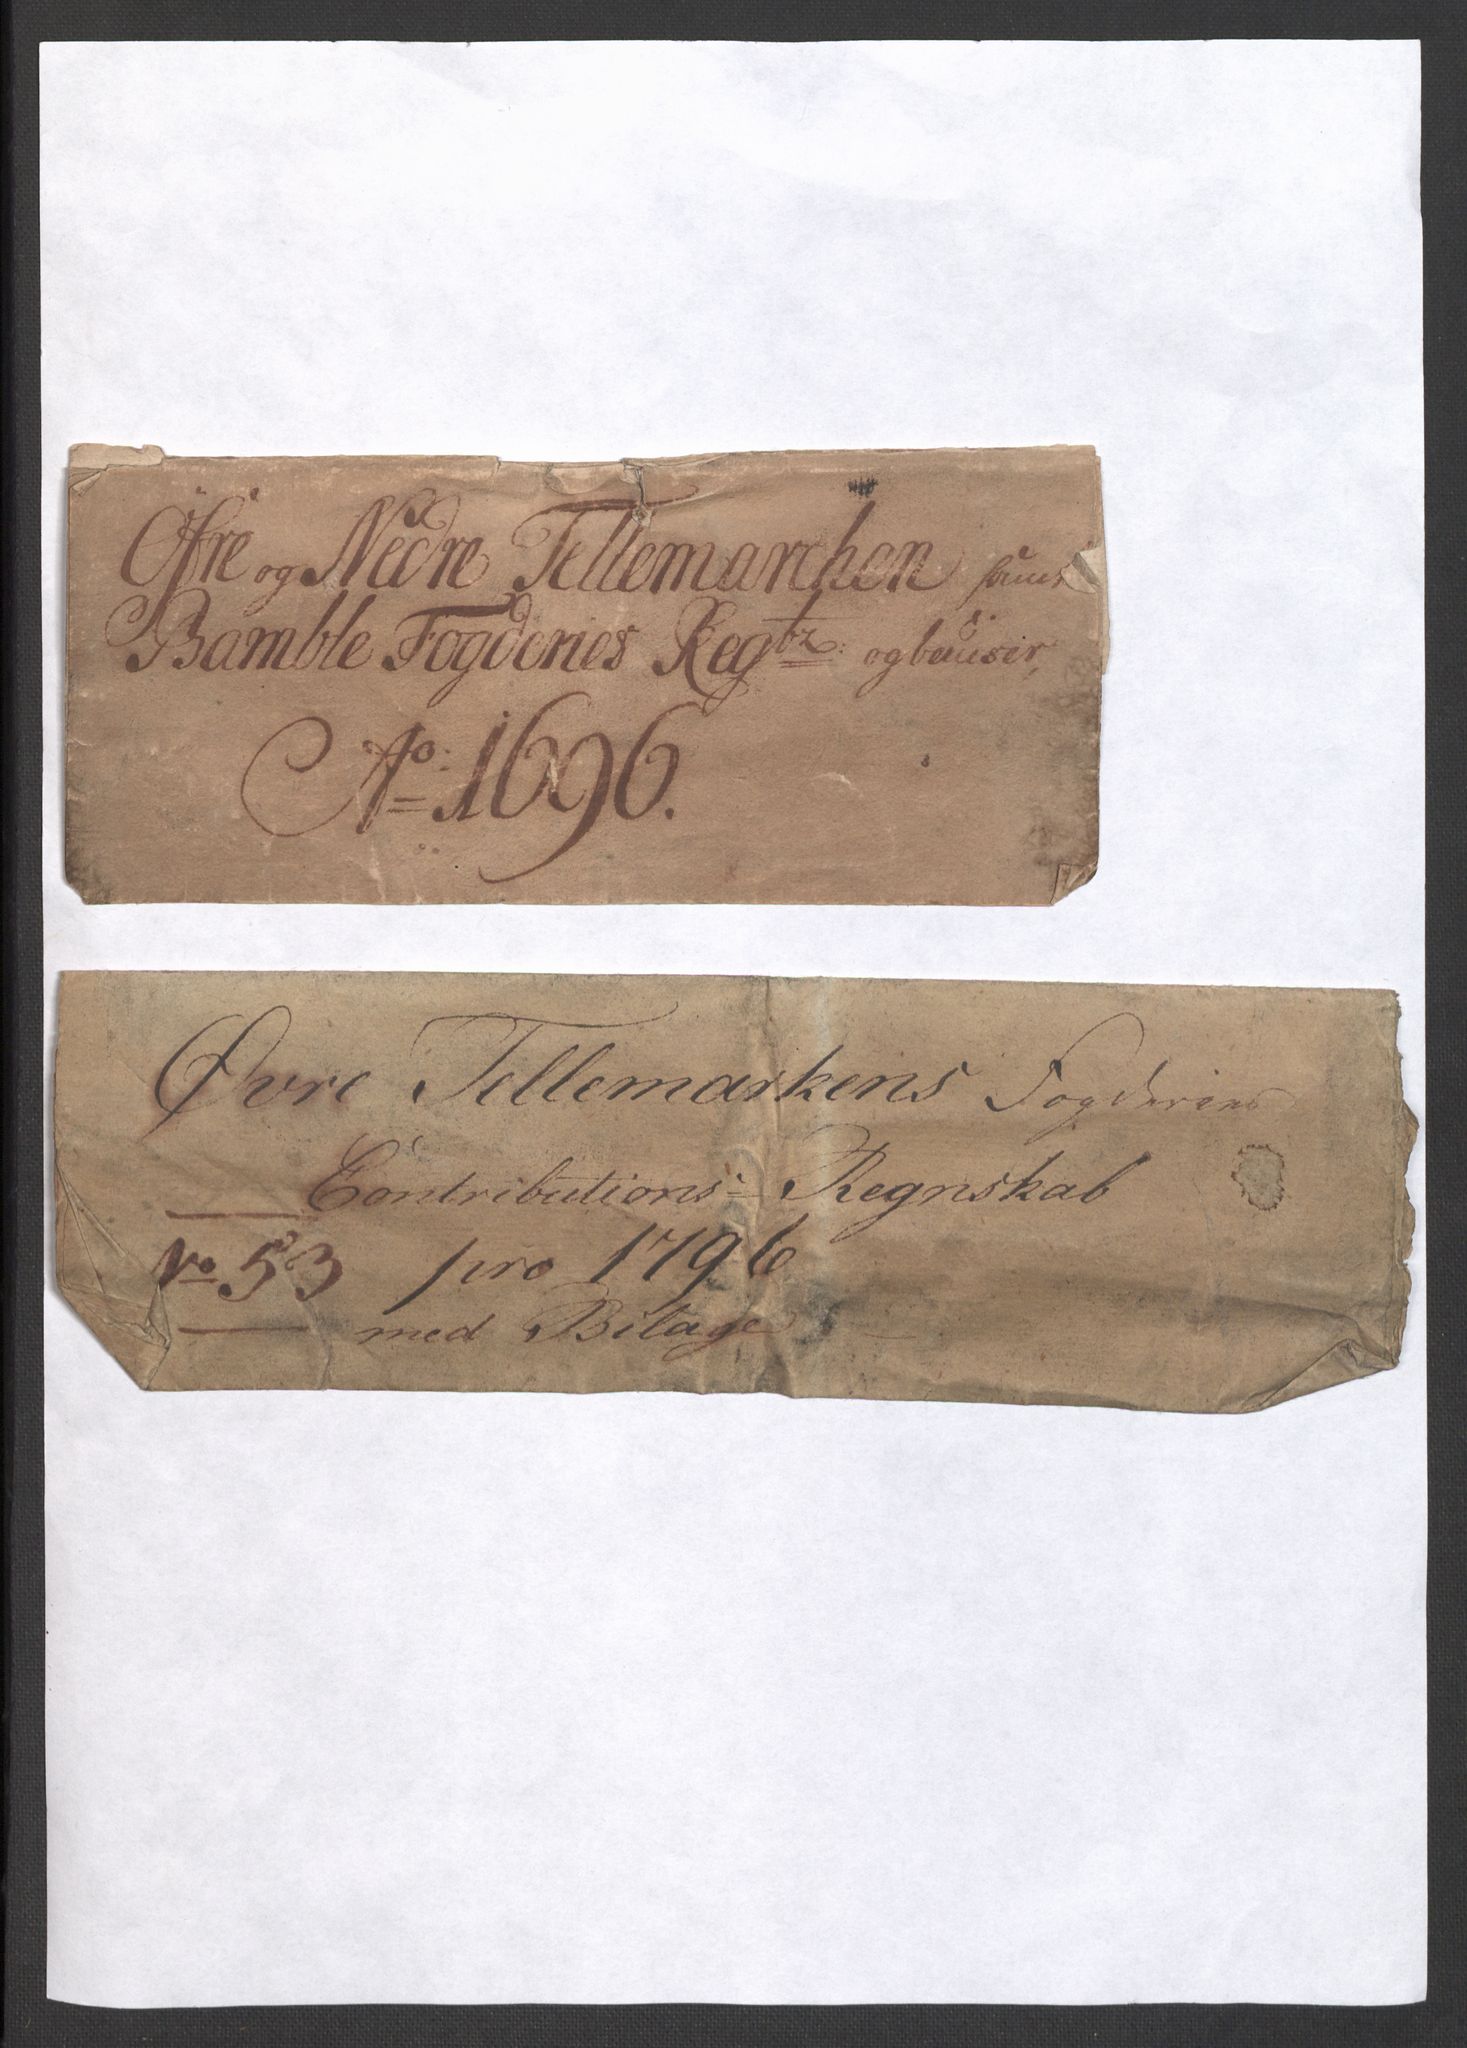 Öfre og Nedre Tellemarchen samt
Bamble Fogderies Regbz: og bewiser,
Ao: 1696.
Øvre Tellemarkens Fogderies
Contributions- Regnskab
No 53 pro 1796
med Bilage